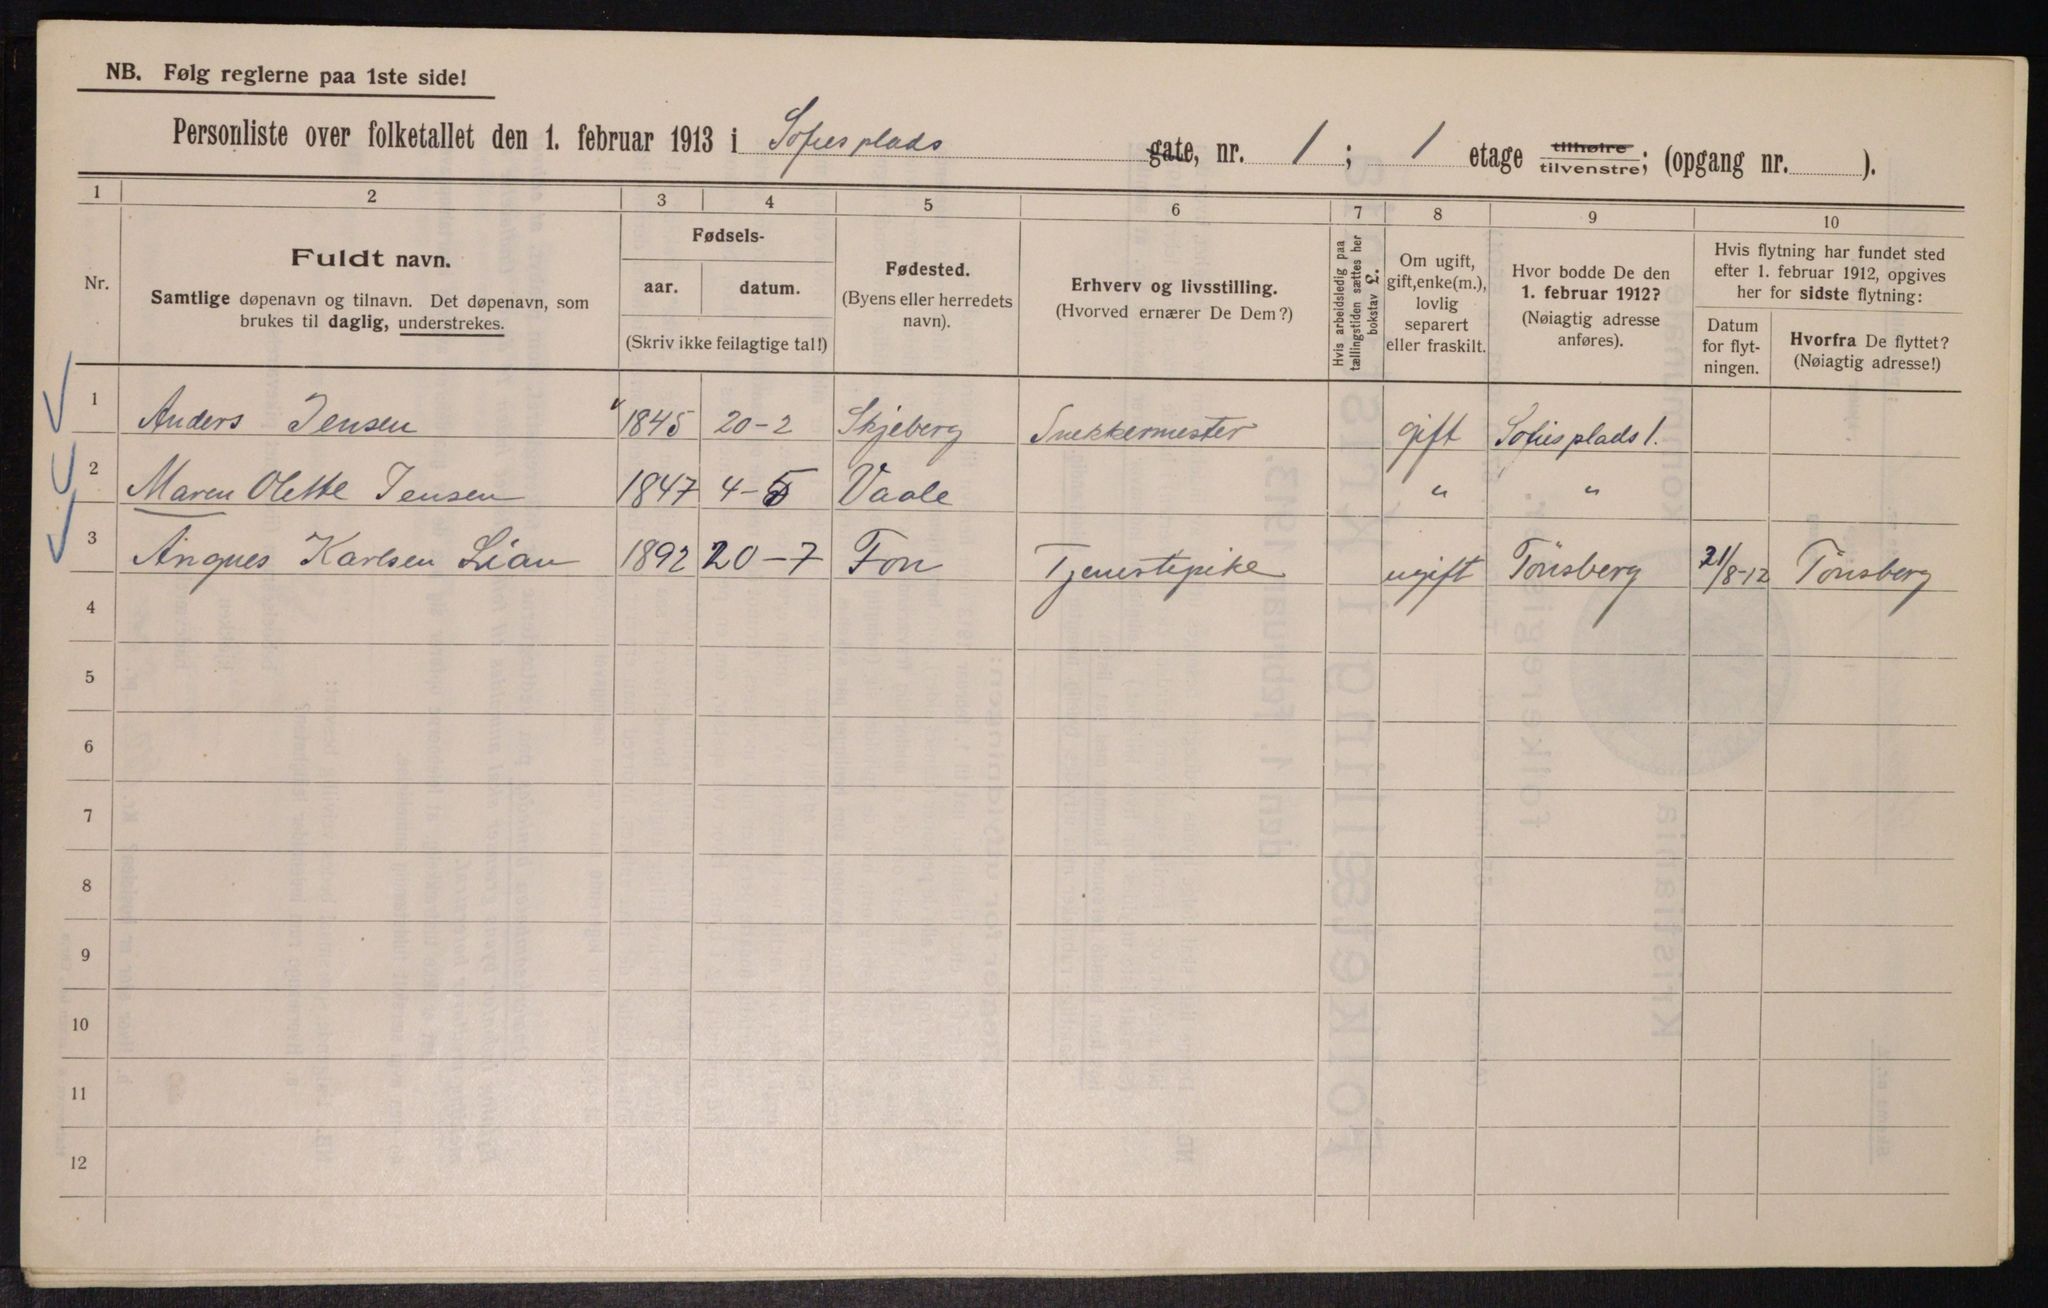 NB. Følg reglerne paa 1ste side!
Personliste over folketallet den 1. februar 1913 i Sofies plads gate, nr. 1 ; 1 etage tilhøire tilvenstre; (opgang nr. ).
1 2 3 4 5 6 7 8 9 10
Nr.
Fuldt navn.
Samtlige døpenavn og tilnavn. Det døpenavn, som
brukes til daglig, understrekes.
Fødsels-
aar. datum.
(Skriv ikke feilagtige tal!)
Fødested.
(Byens eller herredets
navn).
Erhverv og livsstilling.
(Hvorved ernærer De Dem?)
Hvis arbeidsledig paa
tællingstiden sættes her
bokstav L.
Om ugift,
gift, enke(m.),
lovlig
separert
eller fraskilt.
Hvor bodde De den
1. februar 1912?
(Nøiagtig adresse
anføres).
Hvis flytning har fundet sted
efter 1. februar 1912, opgives
her for sidste flytning:
Datum
for flyt-
ningen.
Hvorfra De flyttet?
(Nøiagtig adresse!)
1 Anders Jensen 1845 20-2 Skjeberg Snekkermester gift Sofies plads 1.
2 Maren Olette Jensen 1847 4-5 Vaale " "
3 Angnes Karlsen Lian 1892 20-7 Fon Tjenestepike ugift Tönsberg 21/8-12 Tönsberg
4
5
6
7
8
9
10
11
12